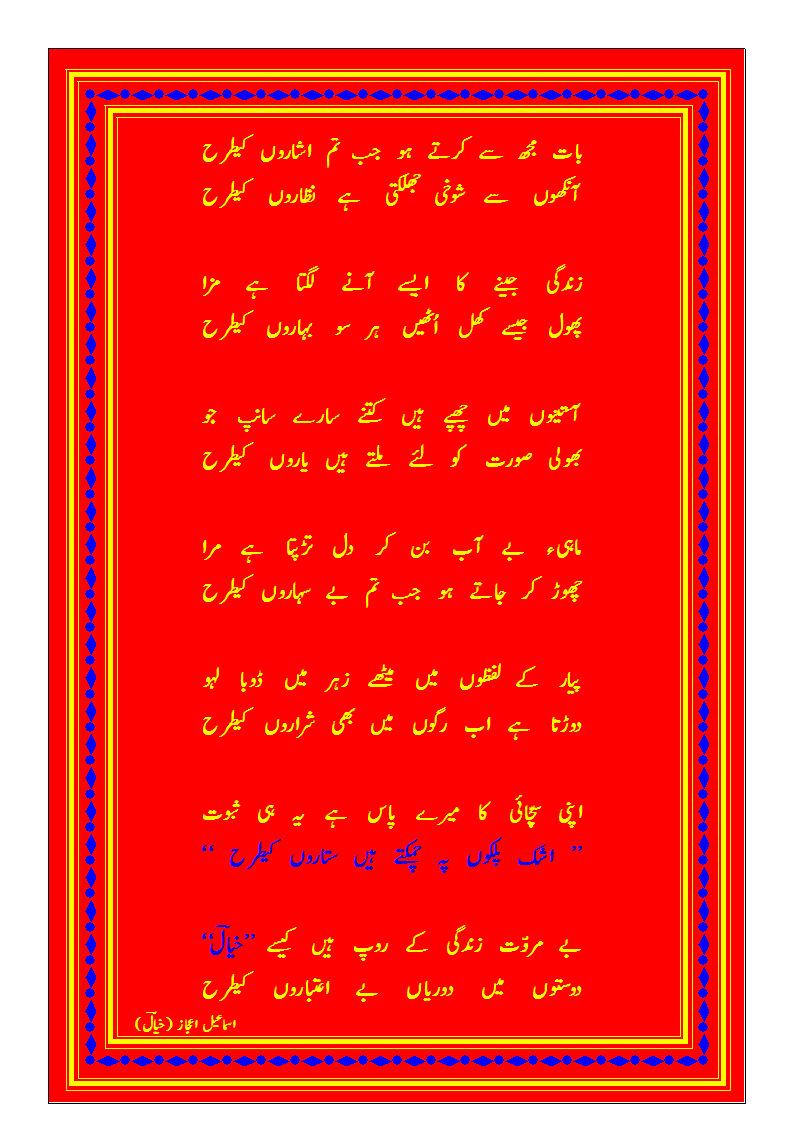 بات مجھ سے کرتے ہو جب تم اشاروں کیطرح
آنکھوں سے شوخی جھلکتی ہے نظاروں کیطرح
زندگی جینے کا ایسے آنے لگتا ہے مزا
پھول جیسے کھل اُٹھیں ہر سو بہاروں کیطرح
آستینوں میں چھپے ہیں کتنے سارے سانپ جو
بھولی صورت کو لئے ملتے ہیں یاروں کیطرح
ماہیء بے آب بن کر دل تڑپتا ہے مرا
چھوڑ کر جاتے ہو جب تم بے سہاروں کیطرح
پیار کے لفظوں میں میٹھے زہر میں ڈوبا لہو
دوڑتا ہے اب رگوں میں بھی شراروں کیطرح
اپنی سچّائی کا میرے پاس ہے یہ ہی ثبوت
” اشک پلکوں پہ چمکتے ہیں ستاروں کیطرح “
بے مروّت زندگی کے روپ ہیں کیسے ”خیالؔ“
دوستوں میں دوریاں بے اعتباروں کیطرح
اسماعیل اعجاز (خیالؔ)